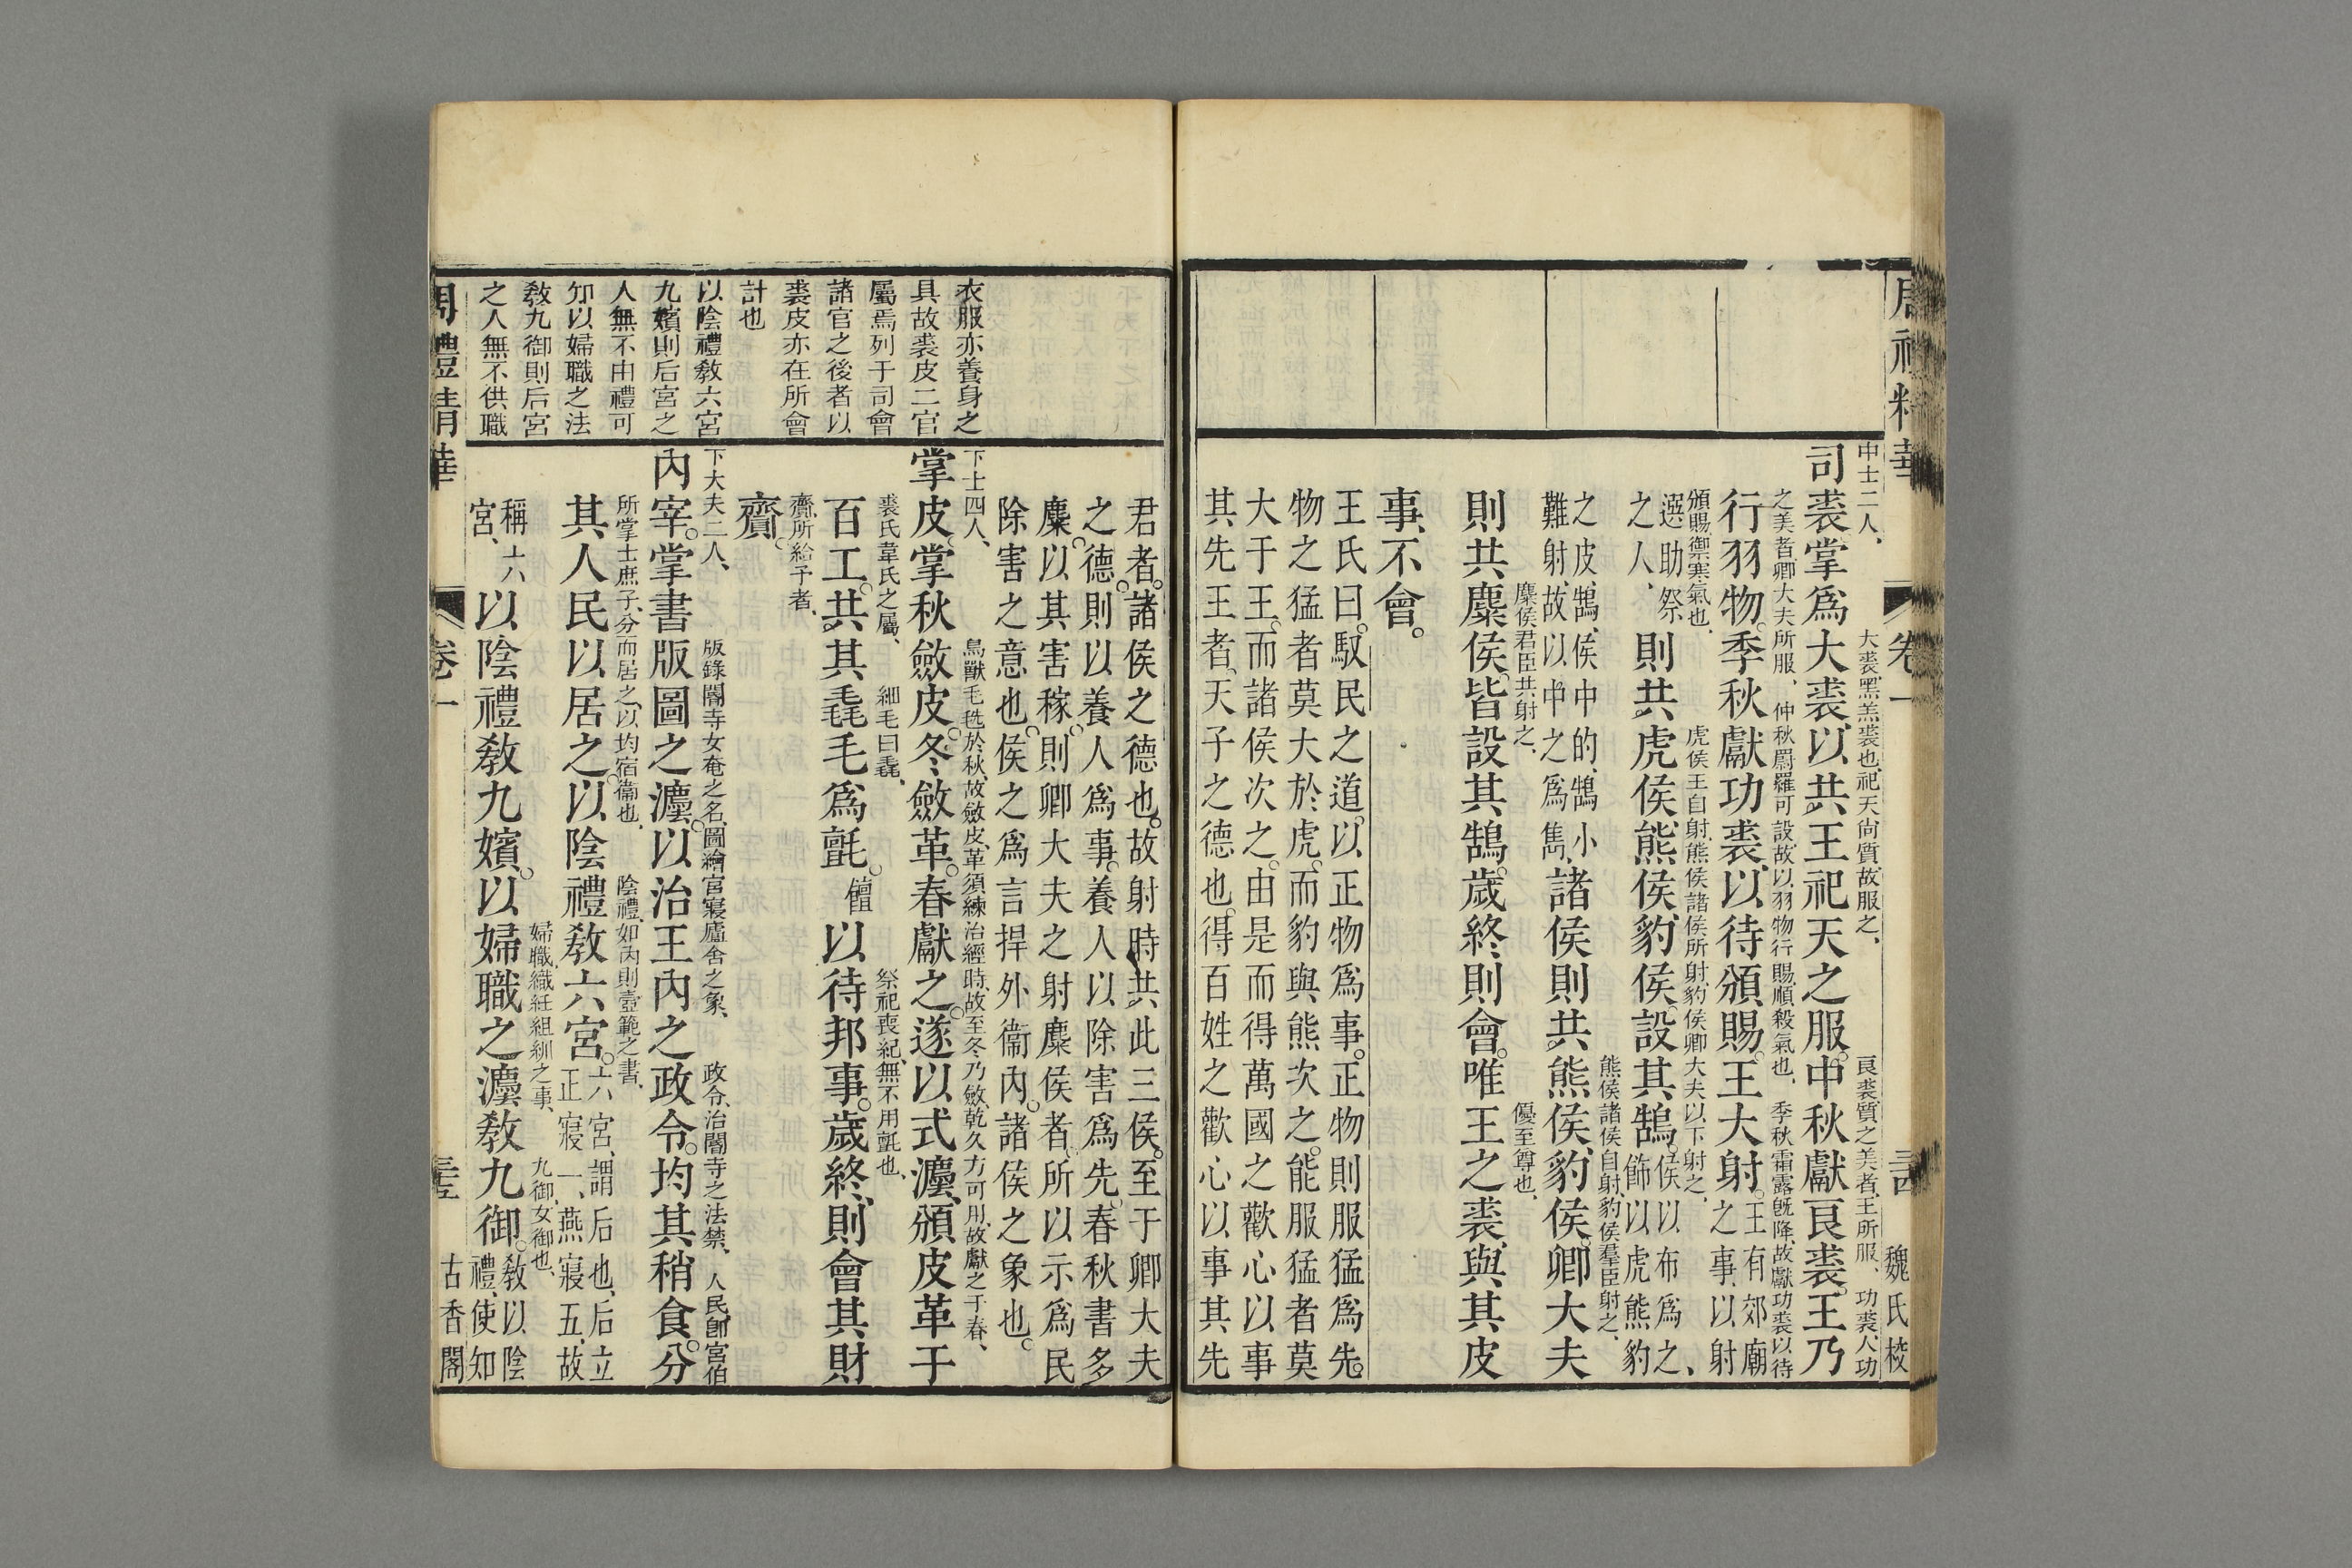 周禮精華 卷一 三四 魏氏校
中士二人、 大裘、黑羔裘也、祀天尙質、故服之、 良裘、質之美者、王所服、 功裘、人功
司裘掌爲大裘、以共王祀天之服。中秋獻良裘。王乃
之美者、卿大夫所服、 仲秋罻羅可設、故以羽物行賜、順殺氣也、 季秋霜露旣降、故獻功裘以待
行羽物。季秋獻功裘、以待頒賜。王大射。王有郊廟
之事、以射
頒賜、禦寒氣也、 虎侯王自射、熊侯諸侯所射、豹侯卿大夫以下射之、
選助祭
之人、 則共虎侯、熊侯、豹侯。設其鵠。侯以布爲之、
飾以虎熊豹
熊侯諸侯自射、豹侯羣臣射之、
之皮、鵠、侯中的、鵠小
難射、故以中之爲雋、諸侯則共熊侯、豹侯。卿大夫
麋侯君臣共射之、 優至尊也、
則共麋侯。皆設其鵠。歲終則會。唯王之裘、與其皮
事、不會。
王氏曰。馭民之道。以正物爲事。正物則服猛爲先。
物之猛者莫大於虎。而豹與熊次之。能服猛者莫
大于王。而諸侯次之。由是而得萬國之歡心以事
其先王者、天子之德也。得百姓之歡心以事其先
君者。諸侯之德也。故射時共此三侯。至于卿大夫
之德。則以養人爲事。養人以除害爲先。春秋書多
麋。以其害稼。則卿大夫之射麋侯者。所以示爲民
除害之意也。侯之爲言捍外衞內。諸侯之象也。
衣服亦養身之
具故裘皮二官
屬焉列于司會
諸官之後者以
裘皮亦在所會
計也
下士四人、 鳥獸毛毨於秋、故斂皮、革須練治經時、故至冬乃斂、乾久方可用、故獻之于春、
掌皮掌秋斂皮。冬斂革。春獻之。遂以式灋、頒皮革于
裘氏韋氏之屬、 細毛曰毳、 祭祀喪紀、無不用氈也、
百工。共其毳毛爲氈。以待邦事。歲終、則會其財
齎、所給予者、
齎。
以陰禮敎六宮
九嬪則后宮之
人無不由禮可
知以婦職之法
敎九御則后宮
之人無不供職
下大夫二人、 版錄閽寺女奄之名、圖繪宮寢廬舍之象、 政令、治閽寺之法禁、 人民卽宮伯
內宰。掌書版圖之灋。以治王內之政令。均其稍食。分
所掌士庶子、分而居之、以均宿衞也、 陰禮、如內則壼範之書、
其人民以居之。以陰禮敎六宮。六宮、謂后也、后立
正寢一、燕寢五、故
婦職、織紝組紃之事、 九御、女御也、
稱六
宮、 以陰禮敎九嬪。以婦職之灋敎九御。敎以陰
禮、使知
周禮精華 卷一 三五 古香閣